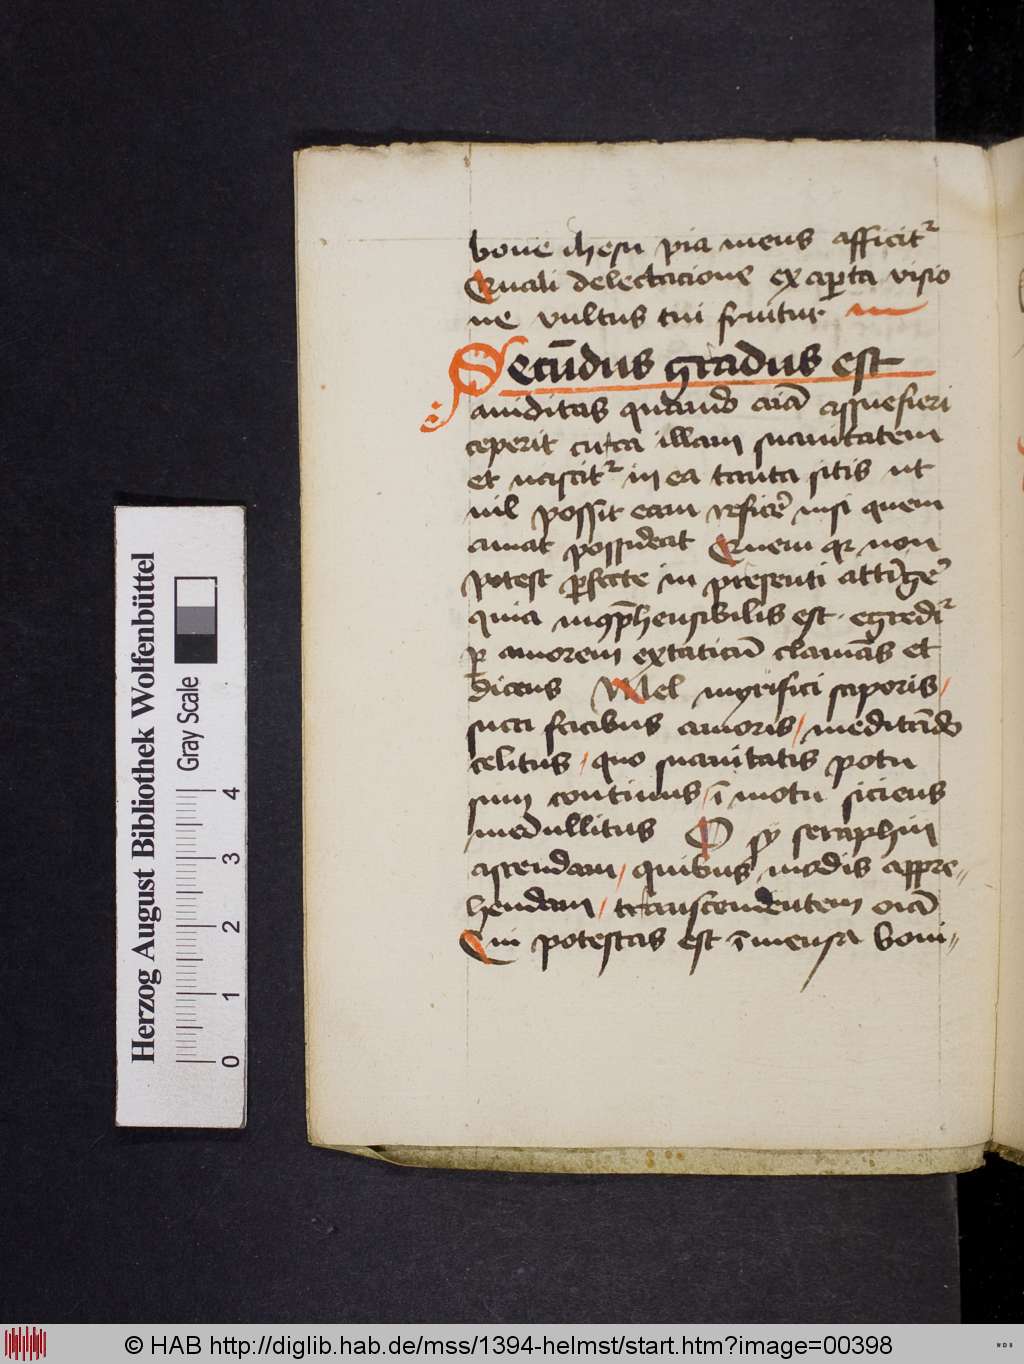 bone ihesu pia mens afficitᷣ
Quali delectacione ex aꝑta visio
ne vultus tui fruitur
Secūdus gradus est
auiditas quando aīa assuefieri
ceperit circa illam suauitatem
et nascitᷣ in ea tanta sitis ut
nil possit eam reficeͬ nisi quem
amat possideat Quem qꝛ non
potest ꝑfecte in presenti attīgeͬ
quia inꝯp̄hensibilis est · egreditᷣ
ꝑ amorem extaticū clamās et
dicens Mel myrifici saporis /
succi facibus amoris / meditādo
celitus / quo suauitatis potu
sum continuus / ī motu siciens
medullitus O sy seraphin
ascendam / quibus modis appre-
hendam / transcendentem oīa
Cui potestas est īmensa boni-
Herzog August Bibliothek Wolfenbüttel
Gray Scale
0 1 2 3 4
© HAB http://diglib.hab.de/mss/1394-helmst/start.htm?image=00398